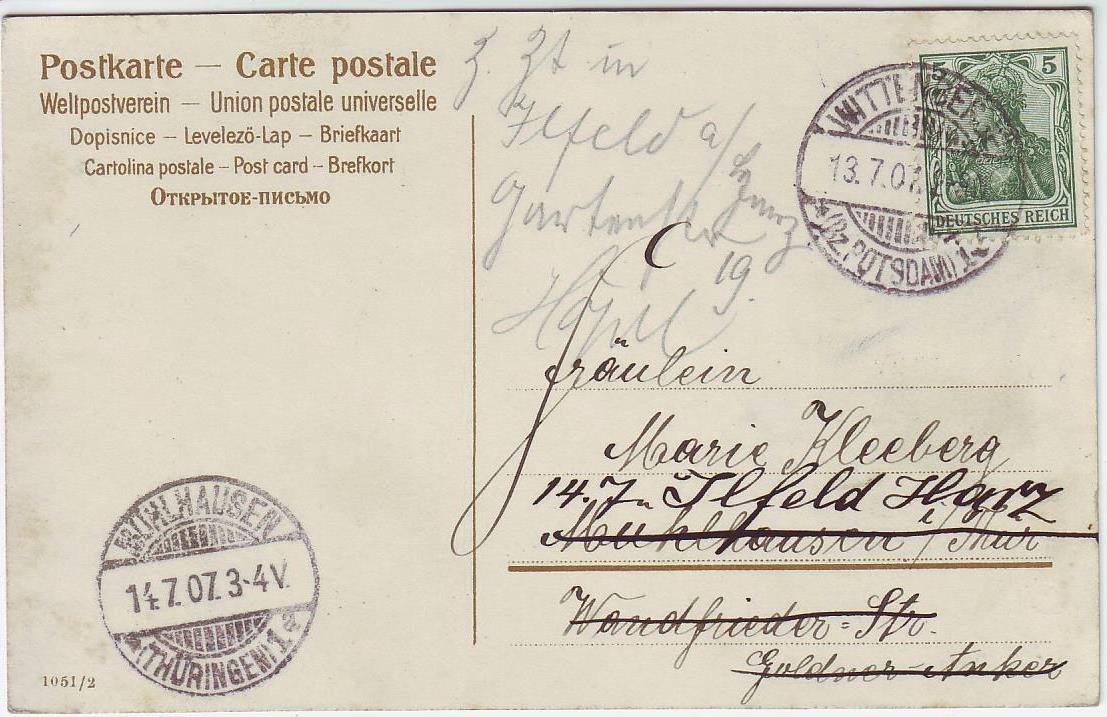 Postkarte – Carte postale
Weltpostverein – Union postale universelle
Dopisnice – Levelező-Lap – Briefkaart
Cartolina postale – Post card – Brefkort
Открытое-письмо
z. Zt in
Ilfeld a/
Harz
Gartenstr
19.
5 5
DEUTSCHES REICH
WITTENBERGE
13.7.07.
(BZ. POTSDAM) 1
Fräulein
Marie Kleeberg
14.7. n. Ilfeld Harz
Mühlhausen i/Thür
Wandfrieder=Str.
Goldner-Anker
MÜHLHAUSEN
14.7.07.3-4V.
(THÜRINGEN) 1
1051/2